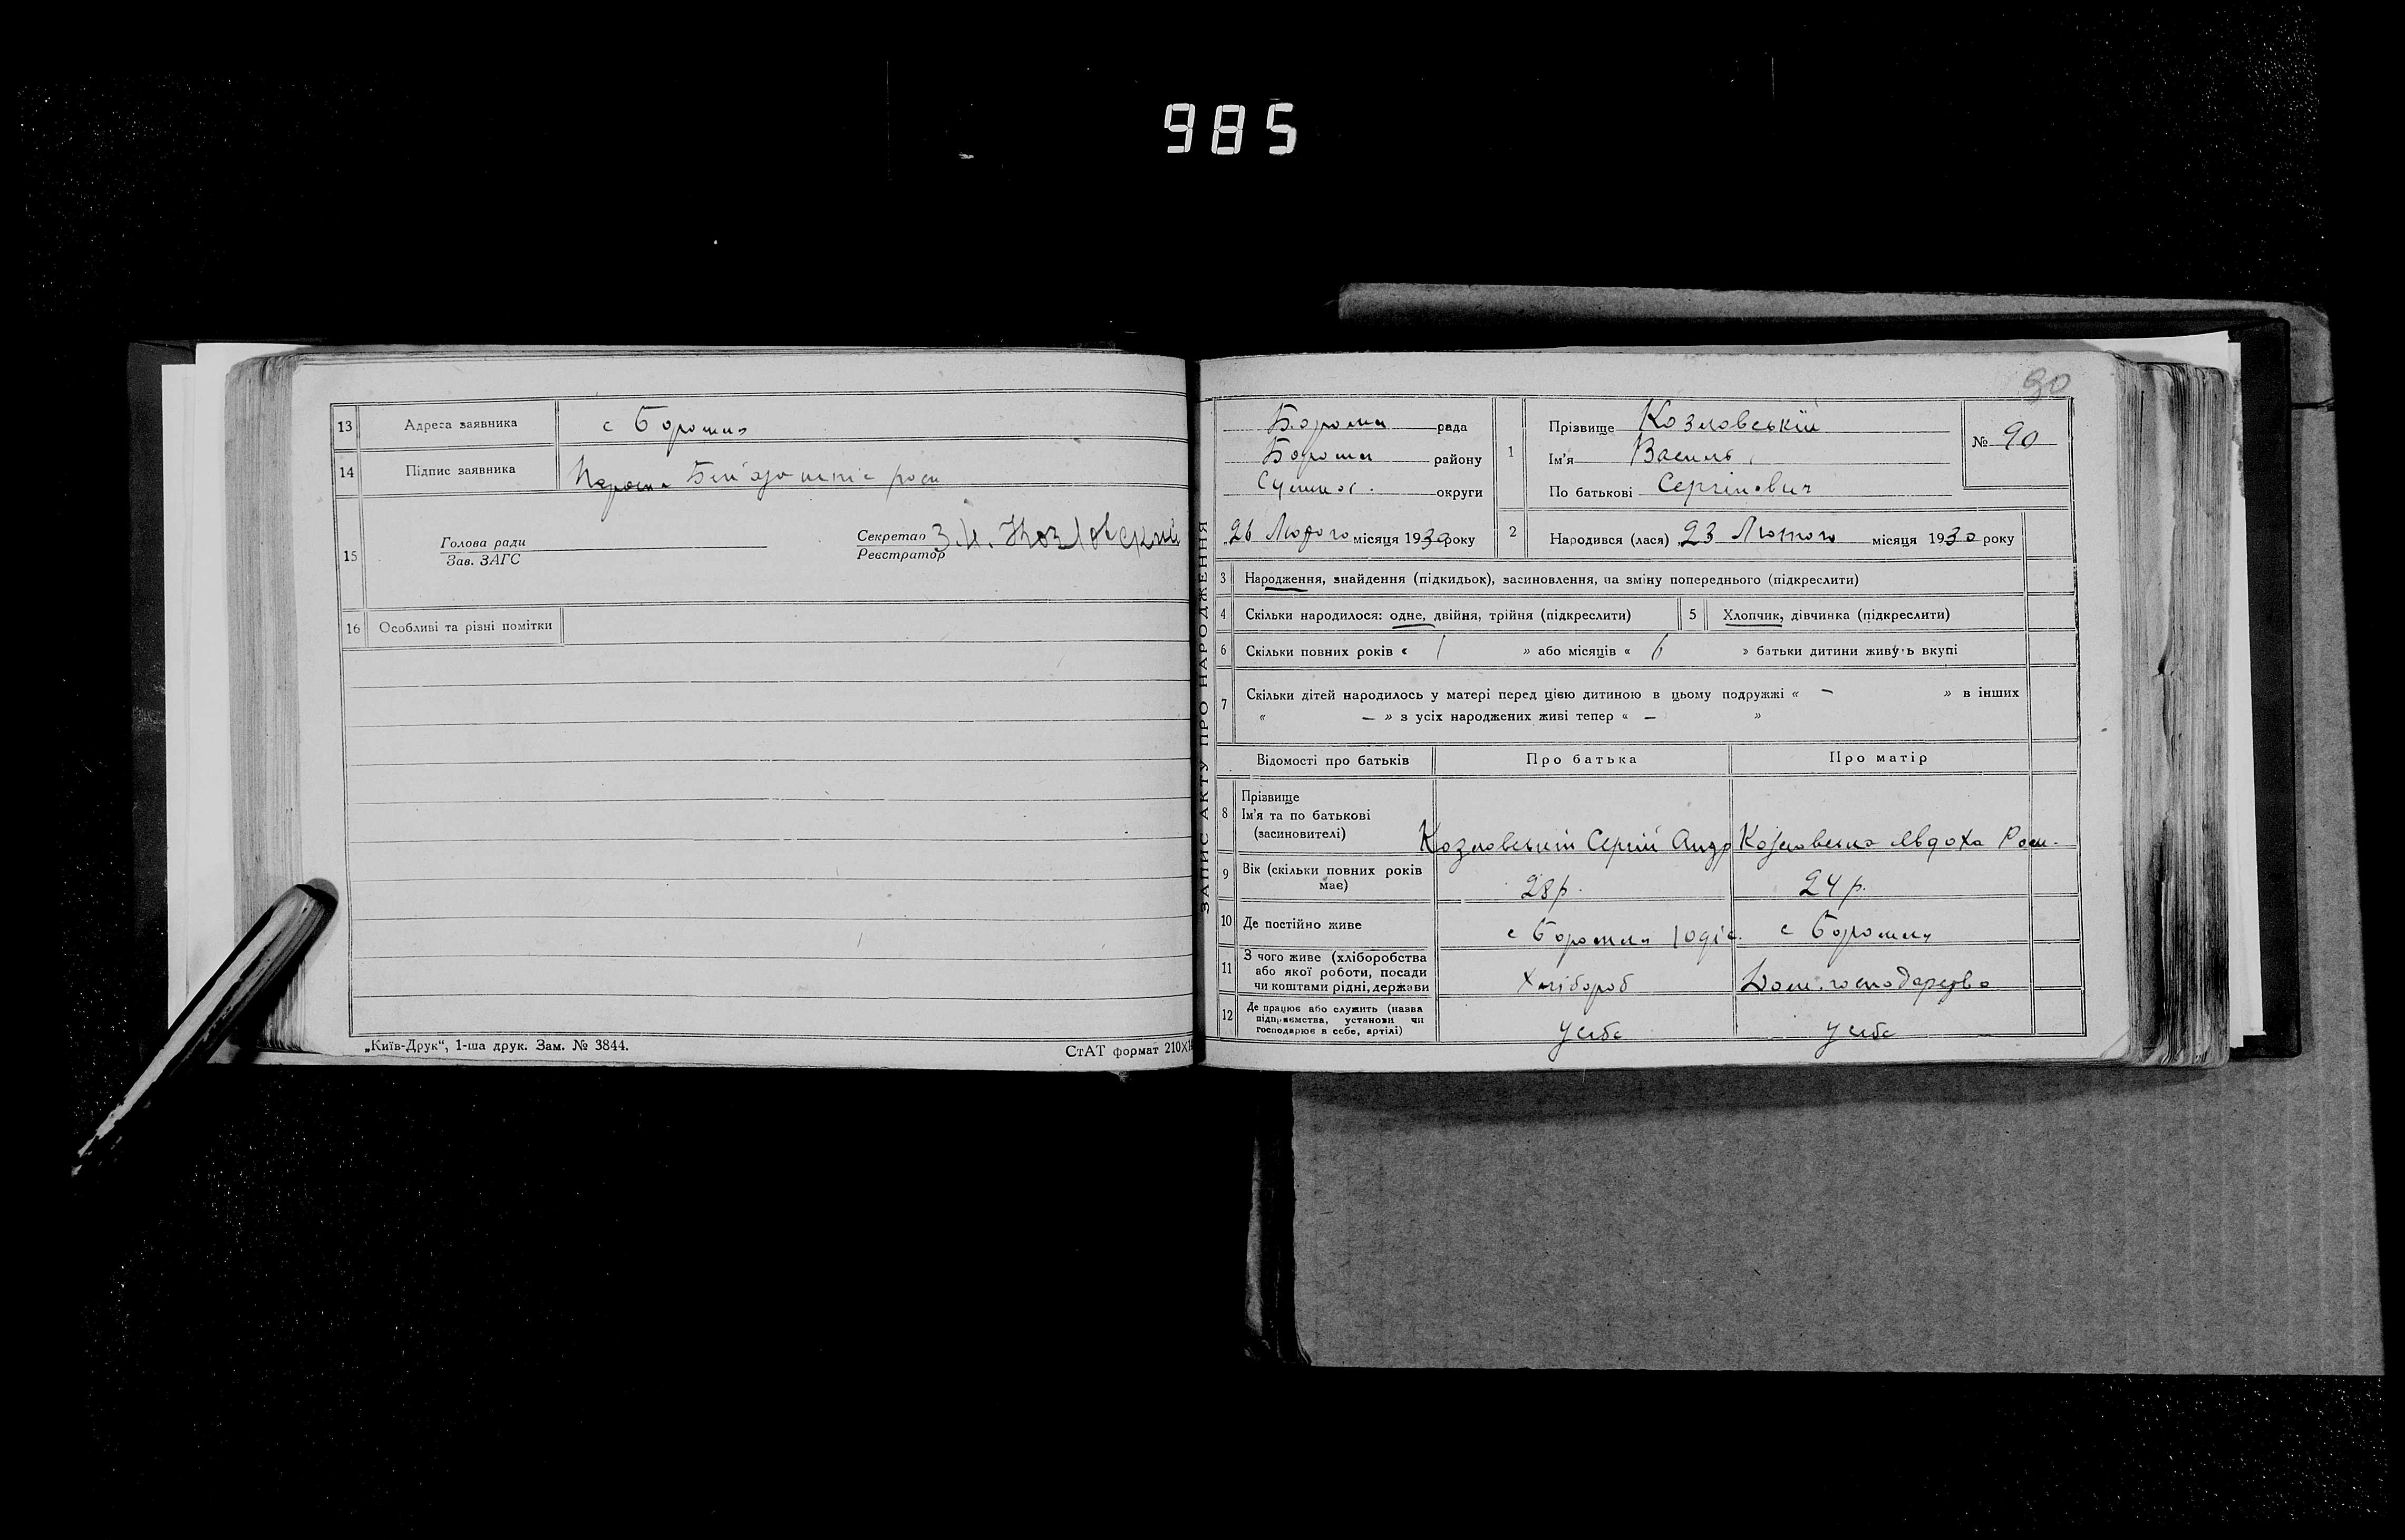 985
13 Адреса заявника с Боромля
14 Підпис заявника
15 Голова ради
Зав. ЗАГС
Секретар
Реєстратор
З.И. Козловский
16 Особливі та різні помітки
„Київ-Друк“, 1-ша друк. Зам. № 3844.
СтАТ формат 210X1
ЗАПИС АКТУ ПРО НАРОДЖЕННЯ
90
Боромл рада
Боромл району
Сумськ. округи
26 Лютого місяця 1930 року
1 Прізвище Козловський
Ім'я Василь
По батькові Сергійович
№ 90
2 Народився (лася) 23 Лютого місяця 1930 року
3 Народження, знайдення (підкидьок), засиновлення, на зміну попереднього (підкреслити)
4 Скільки народилося: одне, двійня, трійня (підкреслити) 5 Хлопчик, дівчинка (підкреслити)
6 Скільки повних років « 1 » або місяців « 6 » батьки дитини живуть вкупі
7 Скільки дітей народилось у матері перед цією дитиною в цьому подружжі « – » в інших
« – » з усіх народжених живі тепер « – »
Відомості про батьків Про батька Про матір
8 Прізвище
Ім'я та по батькові
(засиновителі)
Козловський Сергій Андр Козловська Явдоха Ром.
9 Вік (скільки повних років має) 28 р. 24 р.
10 Де постійно живе с Боромля с Боромля
11 З чого живе (хліборобства
або якої роботи, посади
чи коштами рідні, держави
Хлібороб Дом. господарство
12 Де працює або служить (назва
підприємства, установи чи
господарює в себе, артілі)
у себе у себе